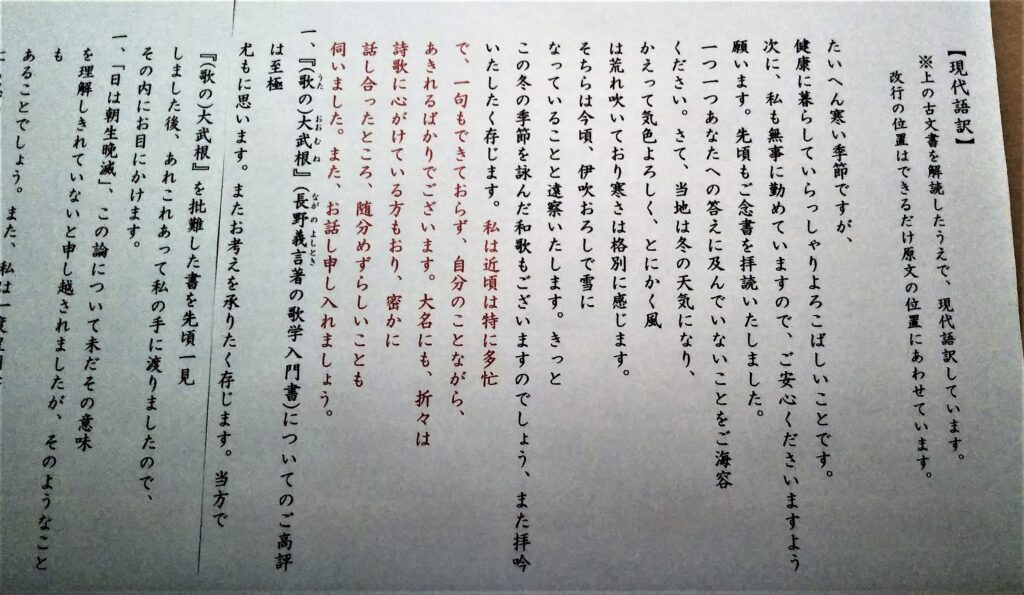 【現代語訳】
※上の古文書を解読したうえで、現代語訳しています。
改行の位置はできるだけ原文の位置にあわせています。
たいへん寒い季節ですが、
健康に暮らしていらっしゃりよろこばしいことです。
次に、私も無事に勤めていますので、ご安心くださいますよう
願います。先頃もご念書を拝読いたしました。
一つ一つあなたへの答えに及んでいないことをご海容
ください。さて、当地は冬の天気になり、
かえって気色よろしく、とにかく風
は荒れ吹いており寒さは格別に感じます。
そちらは今頃、伊吹おろしで雪に
なっていることと遠察いたします。きっと
この冬の季節を詠んだ和歌もございますのでしょう、また拝吟
いたしたく存じます。私は近頃は特に多忙
で、一句もできておらず、自分のことながら、
あきれるばかりでございます。大名にも、折々は
詩歌に心がけている方もおり、密かに
話し合ったところ、随分めずらしいことも
伺いました。また、お話し申し入れましょう。
一、『(歌の)大武根』(長野義言著の歌学入門書)についてのご高評
うた おおむね ながのよしとき
は至極
尤もに思います。またお考えを承りたく存じます。当方で
『(歌の)大武根』を批難した書を先頃一見
しました後、あれこれあって私の手に渡りましたので、
その内にお目にかけます。
一、「日は朝生晩滅」、この論について未だその意味
を理解しきれていないと申し越されましたが、そのようなこと
も
あることでしょう。また、私は一度